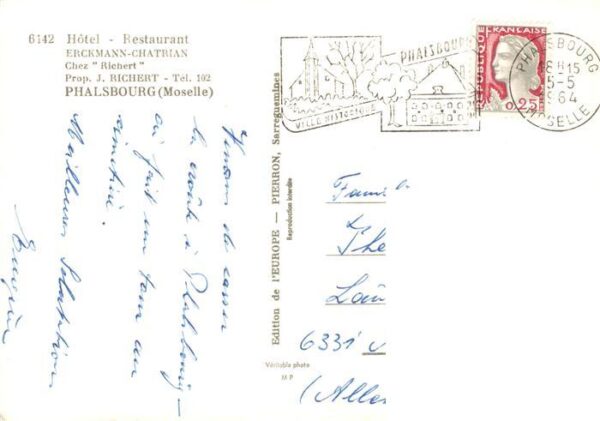 6142 Hôtel - Restaurant
ERCKMANN-CHATRIAN
Chez "Richert"
Prop. J. RICHERT - Tél. 102
PHALSBOURG (Moselle)
Venons de casser
la croûte à Phalsbourg -
au fait un tour en
Meilleures Salutations
Edition de l'EUROPE — PIERRON, Sarreguemines
Reproduction interdite
Véritable photo
M P
PHALSBOURG
VILLE HISTORIQUE
REPUBLIQUE FRANÇAISE
0,25
PHALSBOURG
18H15
5-5
1964
MOSELLE
Famil
The
Lou
6331
(Aller